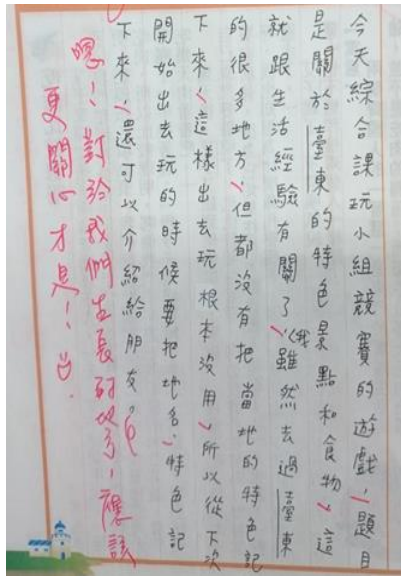 今天綜合課玩小組競賽的遊戲，題目
是關於臺東的特色景點和食物，這
就跟生活經驗有關了，我雖然去過臺東
的很多地方，但都沒有把當地的特色記
下來，這樣出去玩根本沒用，所以從下次
開始出去玩的時候要把地名、特色記
下來，還可以介紹給朋友。
嗯！對於我們生長的地方，應該
更關心才是！